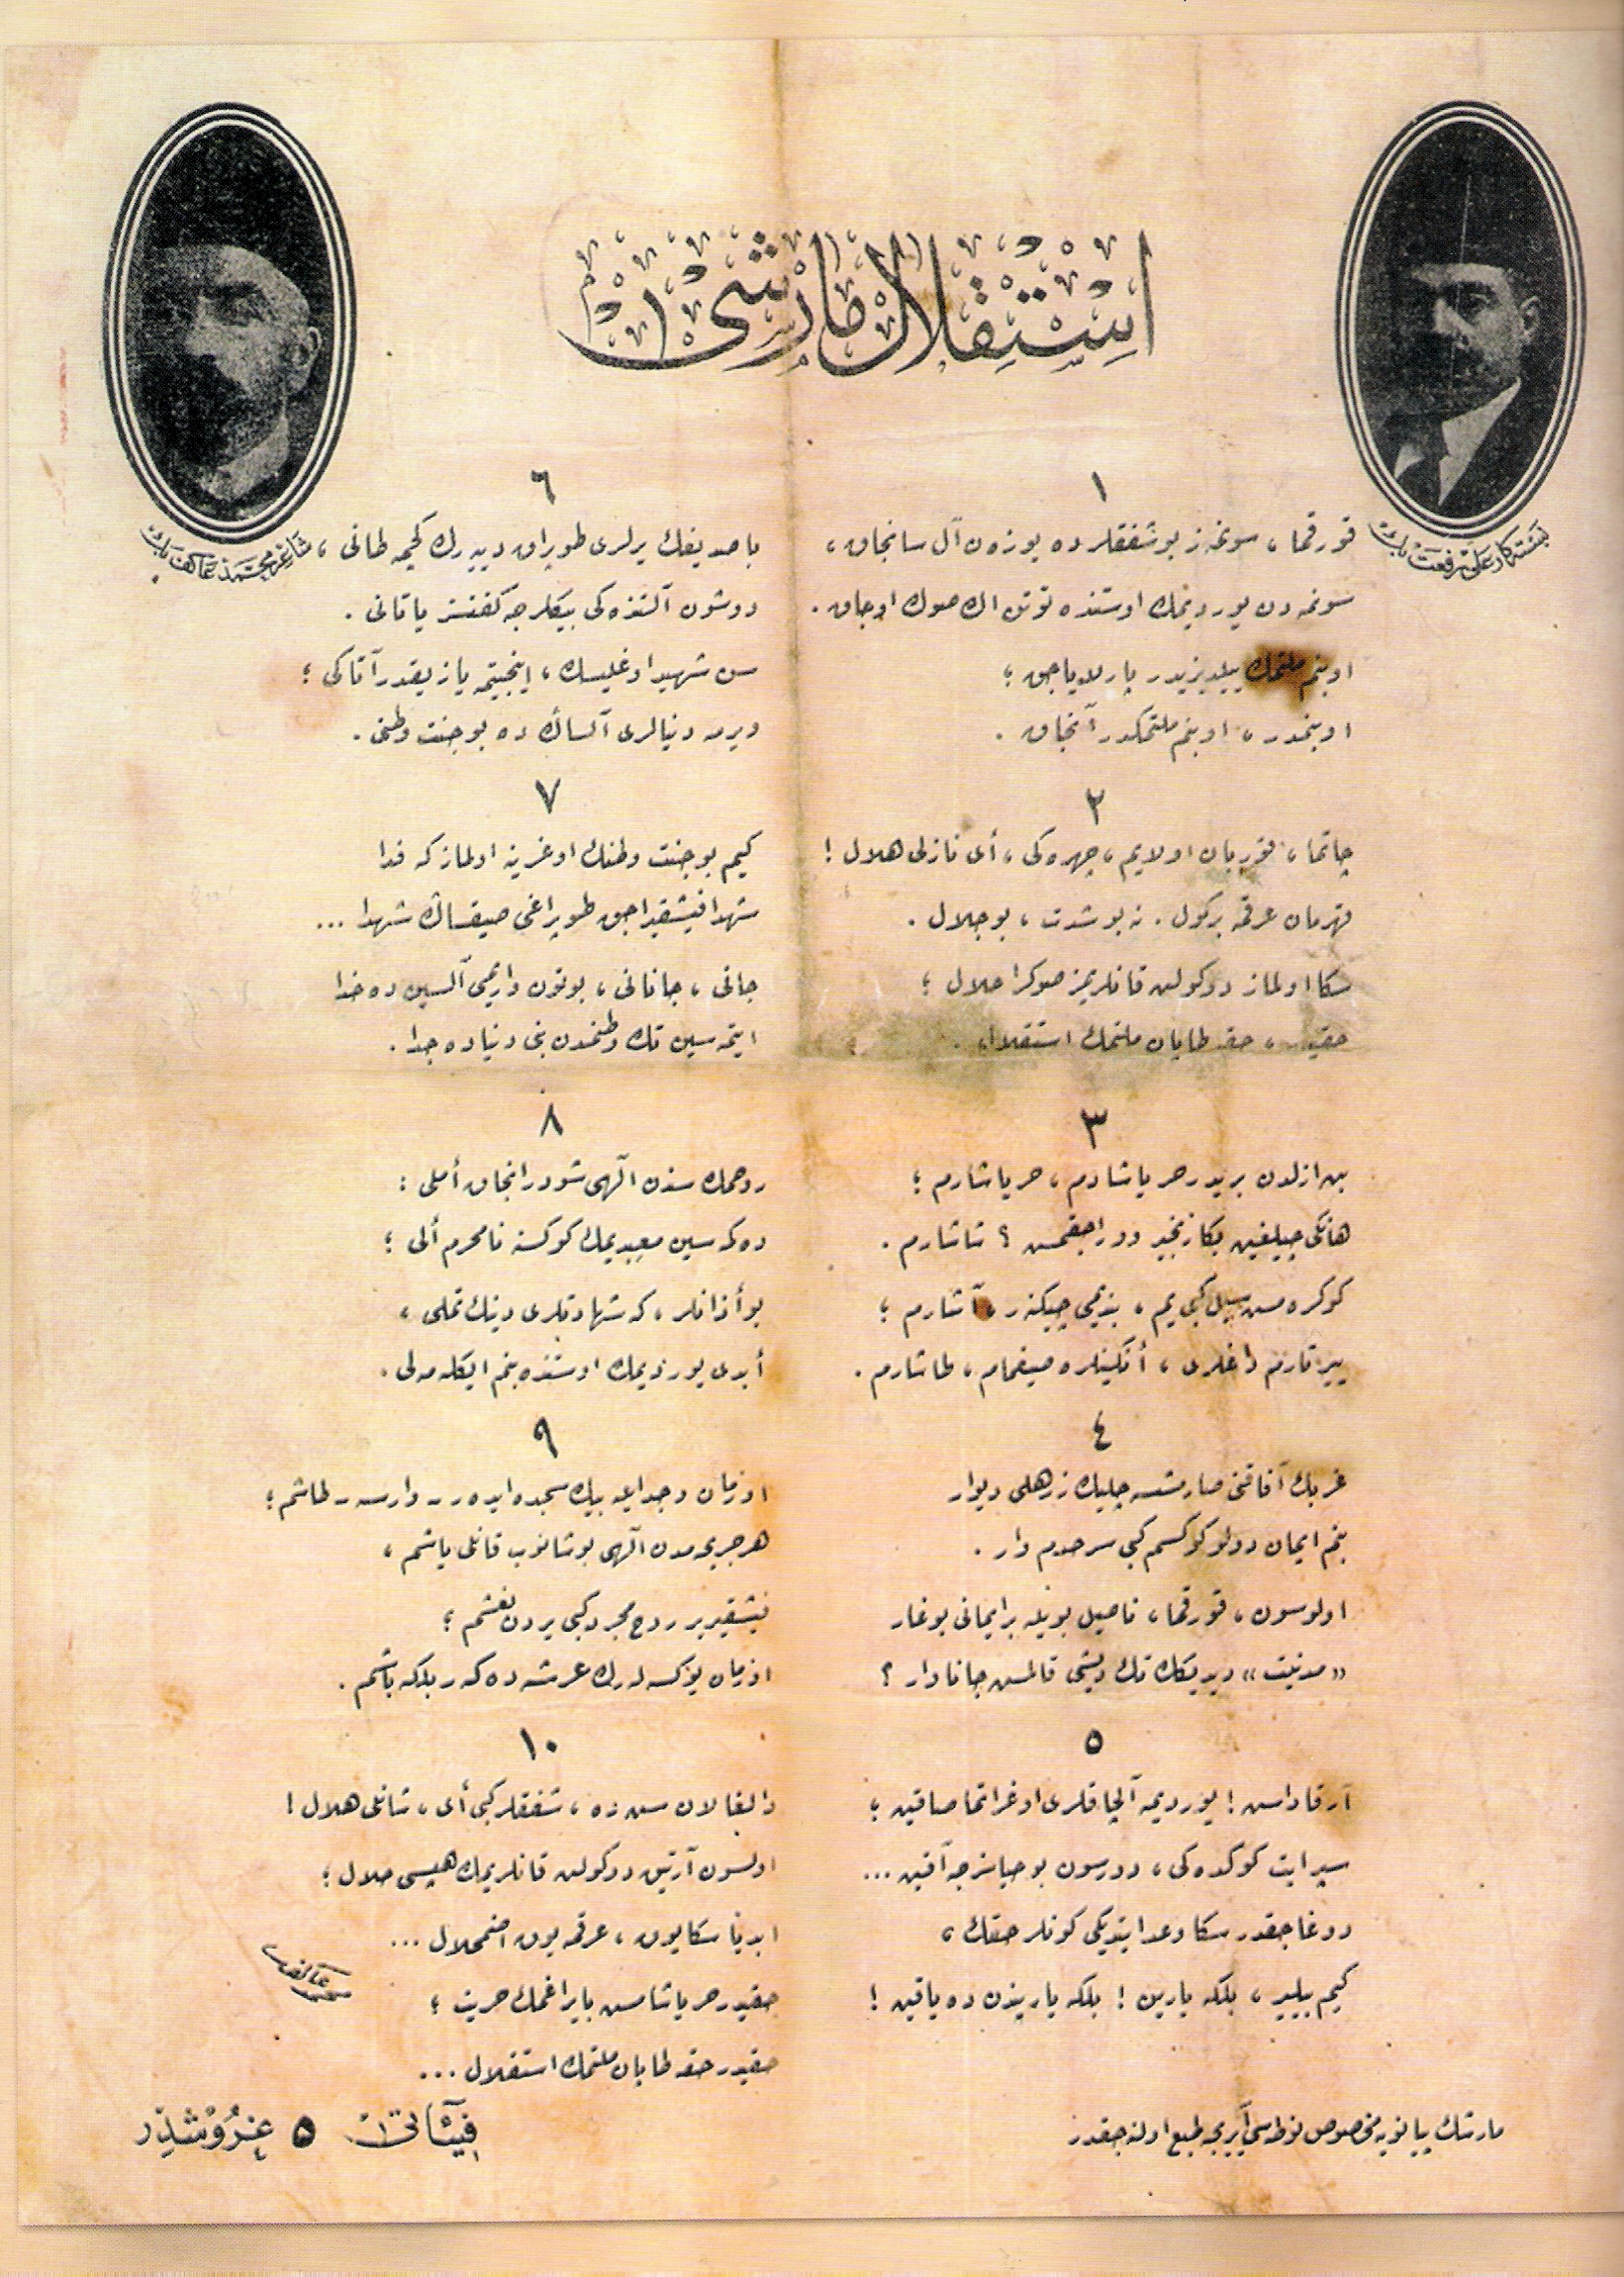 استقلال مارشى
بسته‌كار على رفعت بك
شاعر محمد عاكف بك
١
قورقما، سونمز بو شفقلرده يوزه‌ن آل سانجاق،
سونمه‌دن يورديمك اوستنده توتن اڭ صوڭ اوجاق.
او بنم ملتمك ييلديزيدر پارلاياجق؛
او بنمدر، او بنم ملتمكدر آنجاق.
٢
چاتما، قوربان اولايم، چهره‌كى، أى نازلى هلال!
قهرمان عرقمه بر كول. نه بو شدت، بو جلال.
سكا اولماز دوكولن قانلريمز صوكرا حلال؛
حقيدر، حقه طاپان ملتمك استقلال.
٣
بن ازلدن بريدر حر ياشادم، حر ياشارم؛
هانكى چيلغين بكا زنجير ووراجقمش؟ شاشارم.
كوكره‌مش سيل كبى يم، بندمى چيكنر، آشارم؛
ييرتارم داغلرى، أنگينلره صيغمام، طاشارم.
٤
غربك آفاقنى صارمشسه چليك زرهلى ديوار
بنم ايمان دولو كوكسم كبى سرحدم وار.
اولوسون، قورقما، ناصيل بويله بر ايمانى بوغار
«مدنيت» ديديكك تك ديشى قالمش جاناوار؟
٥
آرقاداش! يورديمه آلچاقلرى اوغراتما صاقين؛
سپر ايت كوكده‌كى، دورسون بو حياسزجه آقين...
دوغاجقدر سكا وعد ايتديكى كونلر حقك،
كيم بيلير، بلكه يارين! بلكه ياريندن ده ياقين!
٦
باصديغك يرلرى طوپراق دييه‌رك كچمه طانى،
دوشون آلتنده‌كى بيكلرجه كفنسز ياتانى.
سن شهيد اوغليسك، اينجيتمه يازيقدر آتاكى؛
ويرمه دنيالرى آلساڭ ده بو جنت وطنى.
٧
كيم بو جنت وطنك اوغرينه اولماز كه فدا
شهدا فيشقيراجق طوپراغى صيقساڭ شهدا...
جانى، جانانى، بوتون واريمى آلسين ده خدا
ايتمه‌سين تك وطنمدن بنى دنياده جدا.
٨
روحمك سندن الٓهى شودر انجاق أملى:
دكمه‌سين معبديمك كوكسنه نامحرم ألى؛
بو أذانلر، كه شهادتلرى دينك تملى،
أبدى يورديمك اوستنده بنم ايكله‌ملى.
٩
او زمان وجد ايله بيك سجده ايده‌ر ـ وارسه ـ طاشم؛
هر جريحه‌مدن الٓهى بوشانوب قانلى ياشم،
فيشقيرير روح مجرد كبى يردن نعشم؛
او زمان يوكسه‌له‌رك عرشه ده‌كه‌ر بلكه باشم.
١٠
دالغالان سن ده، شفقلر كبى أى، شانلى هلال!
اولسون آرتيق دوكولن قانلريمك هپسى حلال؛
ابديا سكا يوق، عرقمه يوق اضمحلال...
حقيدر حر ياشامش بايراغمك حريت؛
حقيدر حقه طاپان ملتمك استقلال...
محمد عاكف
مارشك پيانويه مخصوص نوطه‌سى آيريجه طبع اولنه‌جقدر
فيئاتى ٥ غروشدر